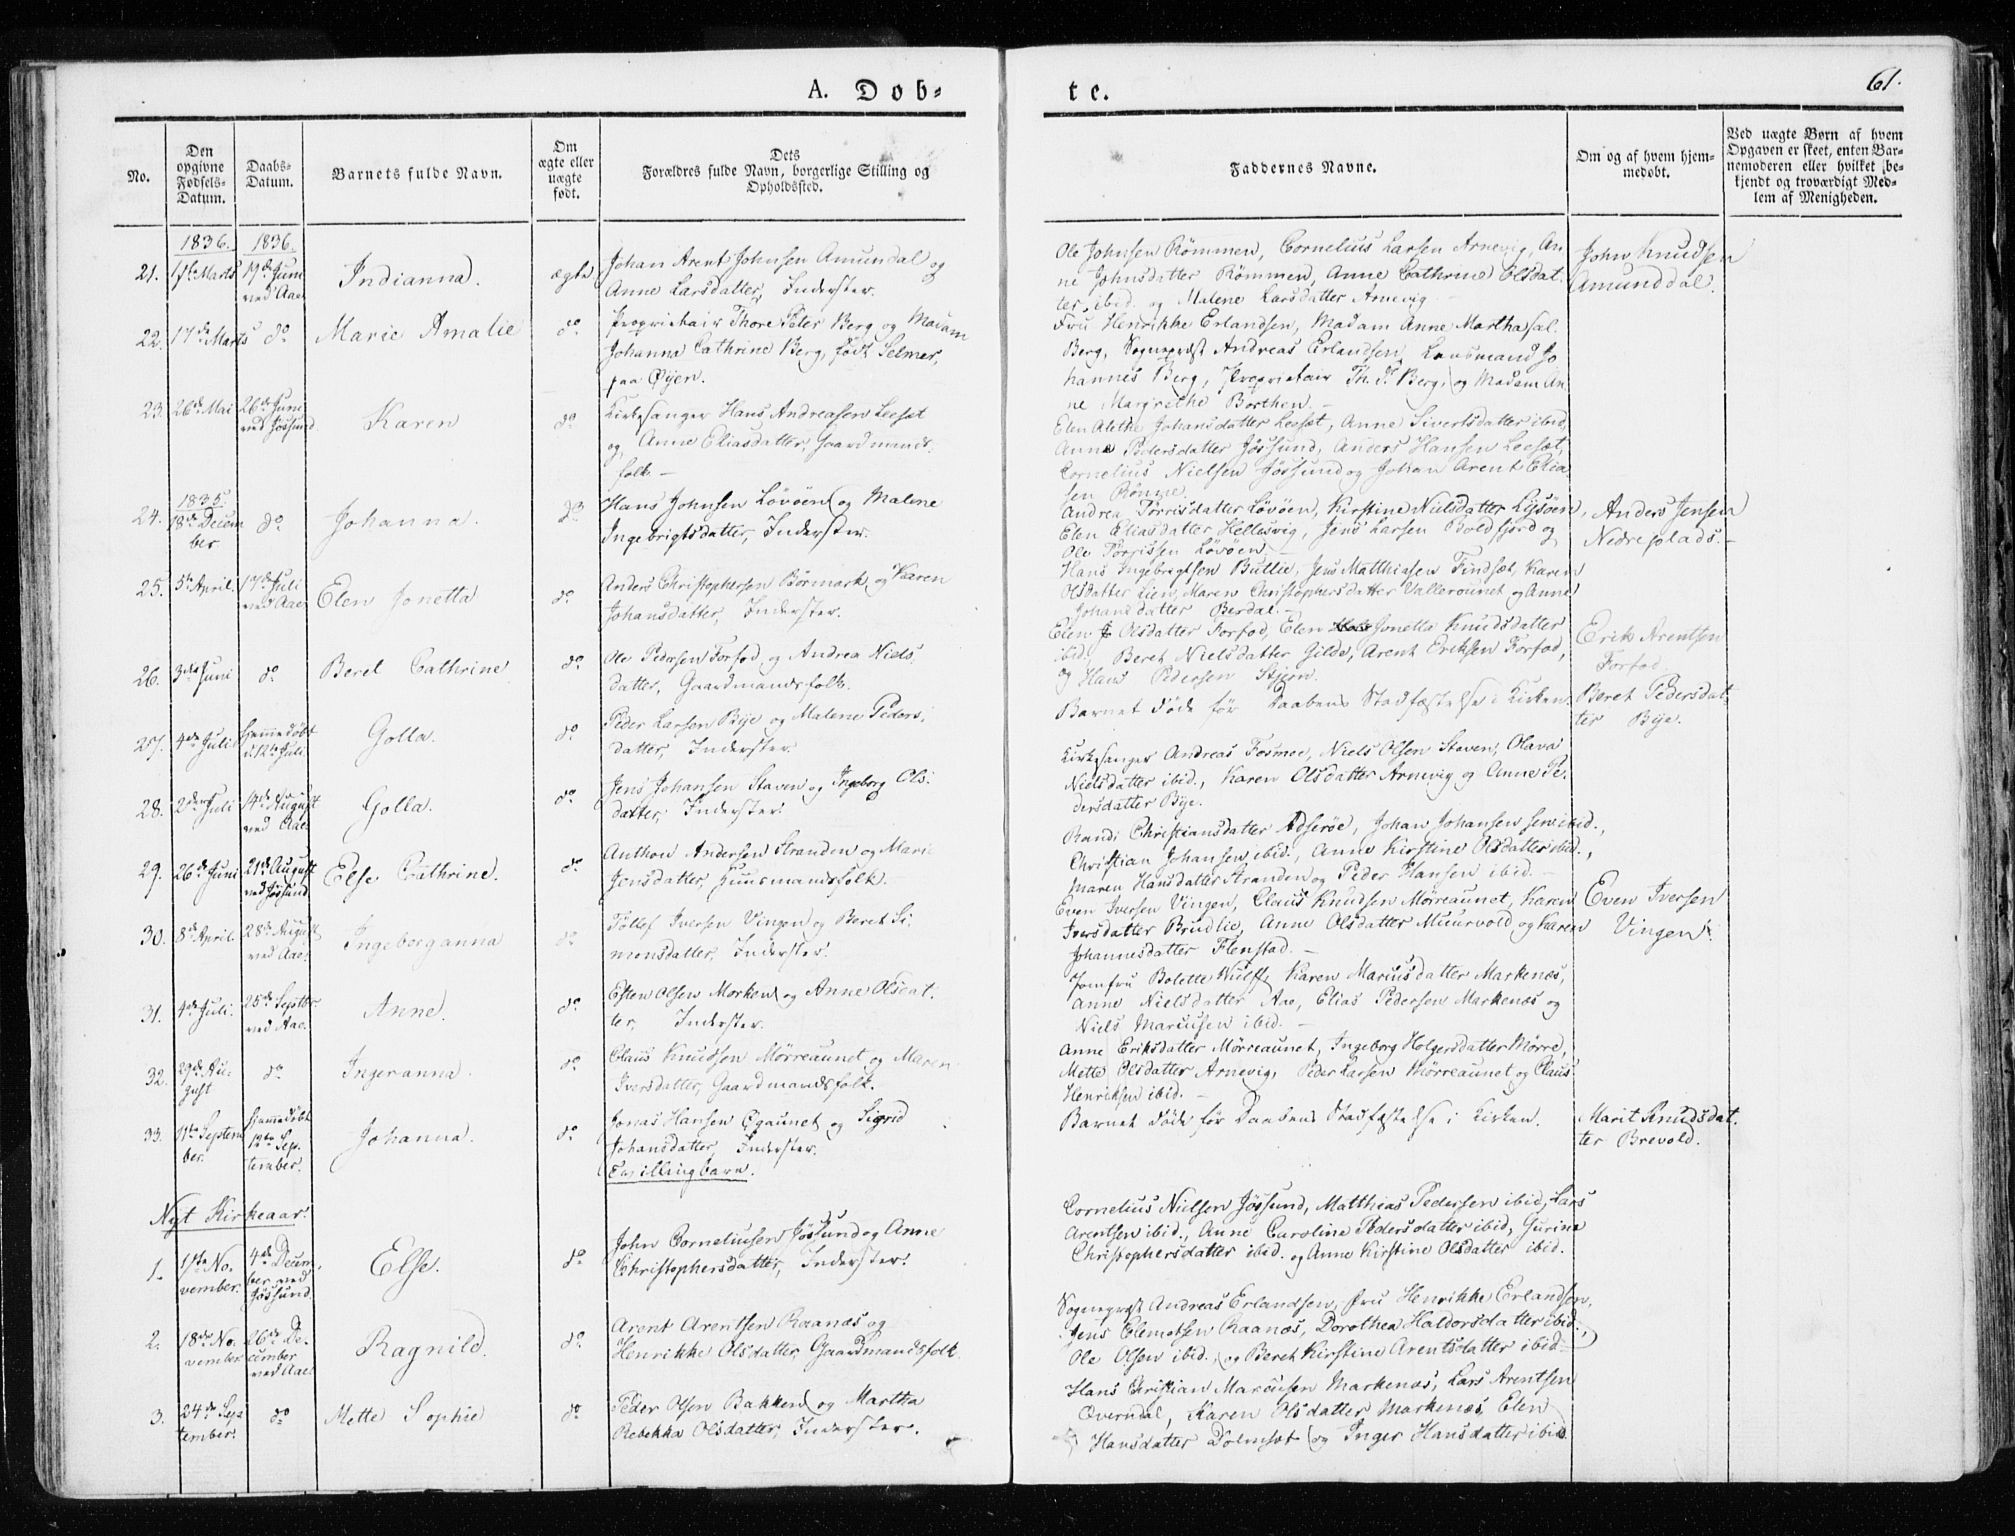 A. Dób-
te.
61.
No.
Den opgivne Fødsels-Datum.
Daabs-Datum.
Barnets fulde Navn.
Om ægte eller uægte født.
Dets Forældres fulde Navn, borgerlige Stilling og Opholdssted.
Faddernes Navne.
Om og af hvem hjem-
medøbt.
Ved uægte Børn af hvem
Opgaven er skeet, enten Bar-
nemoderen eller hvilket be-
kjendt og troværdigt Med-
lem af Menigheden.
1836. 1836.
21. Marts 19de Juni ved Aae. Indianna. ægte
Johan Arent Johnsen Amundal og
Anne Larsdatter, Inderster.
Ole Johnsen Rømmen, Cornelius Larsen Arnevig, An-
ne Johnsdatter Rømmen, Anne Cathrine Olsdat-
ter, ibid. og Malene Larsdatter Arnevig.
John Knudsen
Amunddal.
22. 17de Marts do Marie Amalie do
Proprietair Thore Peter Berg og Madam
Johanna Cathrine Berg, født Selmer,
paa Øyen.
Fru Henrikke Erlandsen, Madam Anne Martha sal.
Berg, Sognepræst Andreas Erlandsen, Lensmand Jo
hannes Berg, Proprietair Th. P. Berg, og Madam An-
ne Margrethe Borthen.
23. 26de Mai 26de Juni ved Jøssund. Karen do
Kirkesanger Hans Andreasen Leeset
og Anne Eliasdatter, Gaardmands-
folk.
Elen Alethe Johansdatter Leeset, Anne Sivertsdatter ibid,
Anne Pedersdatter Jøssund, Anders Hansen Leeset,
Cornelius Nielsen Jøssund og Johan Arent Elia-
sen
1835.
24. 18de Decem
ber. do Johanna. do
Hans Johnsen Løvøen og Malene
Ingebrigtsdatter, Inderster.
Andrea Torrisdatter Løvøen, Kirstine Nielsdatter Lysøen,
Elen Eliasdatter Hellesvig, Jens Larsen Boldfjord og
Ole Torrissen Løvøen.
Anders Jensen
Nedreplads.
25. 5te April. 17de Juli ved Aae. Elen Jonetta do
Anders Christophersen Børmark og Karen
Johansdatter, Inderster.
Hans Ingebrigtsen Butlie, Jens Matthiasen Findset, Karen
Olsdatter Lien, Maren Christophersdatter Vallerounet og Anne
Johansdatter Berdal.
26. 3die Juni do Beret Cathrine do
Ole Pedersen Forfod og Andrea Niels
datter, Gaardmandsfolk.
Elen Olsdatter Forfod, Elen Jonetta Knudsdatter
ibid, Beret Nielsdatter Gilde, Arent Eriksen Forfod,
og Hans Pedersen Stjern.
Erik Arentsen
Forfod.
27. 4de Juli Hjemmedøbt d. 12te Juli. Golla. do
Peder Larsen Bye og Malene Peders-
datter, Inderster.
Barnet døde før Daabens Stadfæstelse i Kirken.
Beret Pedersdat-
ter Bye.
28. 2den Juli 14de August ved Aae. Golla. do
Jens Johansen Staven og Ingeborg Ols-
datter, Inderster.
Kirkesanger Andreas Fosmoe, Niels Olsen Staven, Olava
Nielsdatter ibid., Karen Olsdatter Arnevig og Anne Pe-
dersdatter Bye.
29. 26de Juni 21de August ved Jøssund. Else Cathrine. do
Anthon Andersen Stranden og Mari
Jensdatter, Huusmandsfolk.
Randi Christiansdatter Adserøe, Johan Johansen sen. ibid.,
Christian Johansen ibid., Anne Kirstine Olsdatter ibid.,
Maren Hansdatter Stranden og Peder Hansen ibid.
30. 8de April. 28de August ved Aae. Ingeberganna do
Tollef Iversen Vingen og Beret Si-
monsdatter, Inderster.
Even Iversen Vingen, Claus Knudsen Mørreaunet, Karen
Iversdatter Brudlie, Anne Olsdatter Muurvold og Karen
Johannesdatter Flenstad.
Even Iversen
Vingen.
31. 4de Juli. 25de Septbr ved Aae. Anne. do
Esten Olsen Morken og Anne Olsdat-
ter, Inderster.
Jomfru Bolette Wulff, Karen Mariusdatter Markenæs,
Anne Nielsdatter Aae, Elias Pedersen Markenæs og
Niels Marcusen ibid.
32. 29de Au-
gust do Ingeranna. do
Claus Knudsen Mørreaunet og Maren
Iversdatter, Gaardmandsfolk.
Anne Eriksdatter Mørreaunet, Ingeborg Holgersdatter Mørre,
Mette Olsdatter Arnevig, Peder Larsen Mørreaunet og Claus
Henriksen ibid.
33. 11te Septem
ber. Hjemmedøbt 12te Sep-
tember. Johanna. do
Jonas Hansen Ogaunet og Sigrid
Johansdatter, Inderster.
Tvillingbarn.
Barnet døde før Daabens Stadfæstelse i Kirken.
Marit Knudsdat-
ter Brevold.
Nyt Kirkeaar.
1. 1ste No-
vember. 4de Decem-
ber ved
Jøssund. Else. do
John Corneliusen Jøssund og Anne
Christophersdatter, Inderster.
Cornelius Nielsen Jøssund, Matthias Pedersen ibid, Lars
Arentsen ibid., Anne Caroline Pedersdatter ibid, Gurine
Christophersdatter ibid. og Anne Kirstine Olsdatter ibid.
2. 18de No-
vember 26de De-
cember
ved Aae. Ragnild. do
Arent Arentsen Raanæs og
Henrikke Olsdatter, Gaardmandsfolk
Sognepræst Andreas Erlandsen, Fru Henrikke Erlandsen,
Jens Clemetsen Raanæs, Dorothea Haldorsdatter ibid.,
Ole Olsen ibid., og Beret Kirstine Arentsdatter ibid.
3. 24de Sep
tember. do Mette Sophie do
Peder Olsen Bakken og Martha
Rebekka Olsdatter, Inderster.
Hans Christian Marcusen Markenæs, Lars Arentsen
Overndal, Karen Olsdatter Markenæs, Elen
Hansdatter Dolmset og Inger Hansdatter ibid.